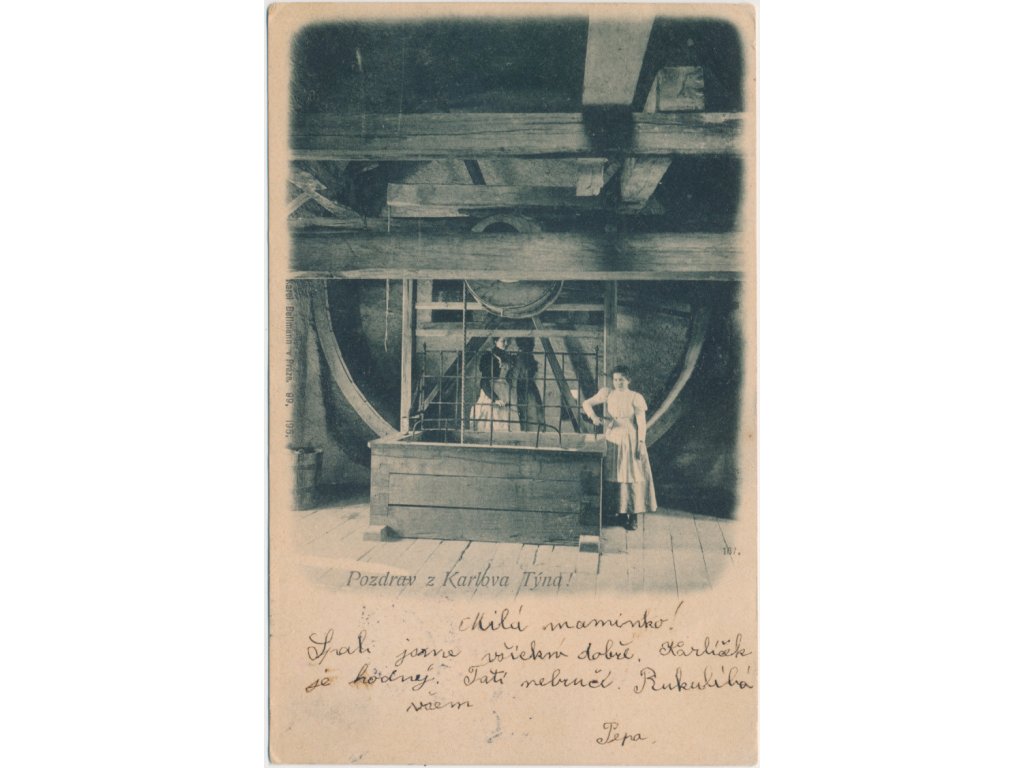 Karel Bellmann v Praze. 89, 1915.
167.
Pozdrav z Karlova Týna!
Milá maminko!
Spali jsme všickni dobře. Karlíček
je hodnej. Tatí nebručí. Rukulíbá
všem
Pepa.